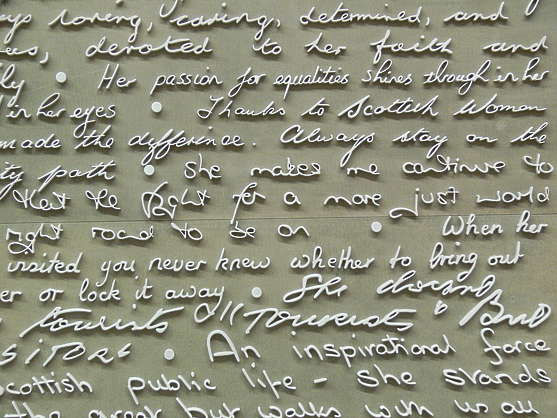 ays loving, caring, determined, and
devoted to her faith and
ly • Her passion for equalities shines through in her
in her eyes • Thanks to Scottish Women
made the difference. Always stay on the
ty path • She makes me continue to
that the fight for a more just world
ight road to be on • When her
visited you never knew whether to bring out
er or lock it away • She doesnt
tourists "Tourists" But
SITORS • An inspirational force
cottish public life - she stands
the great but walks with us all